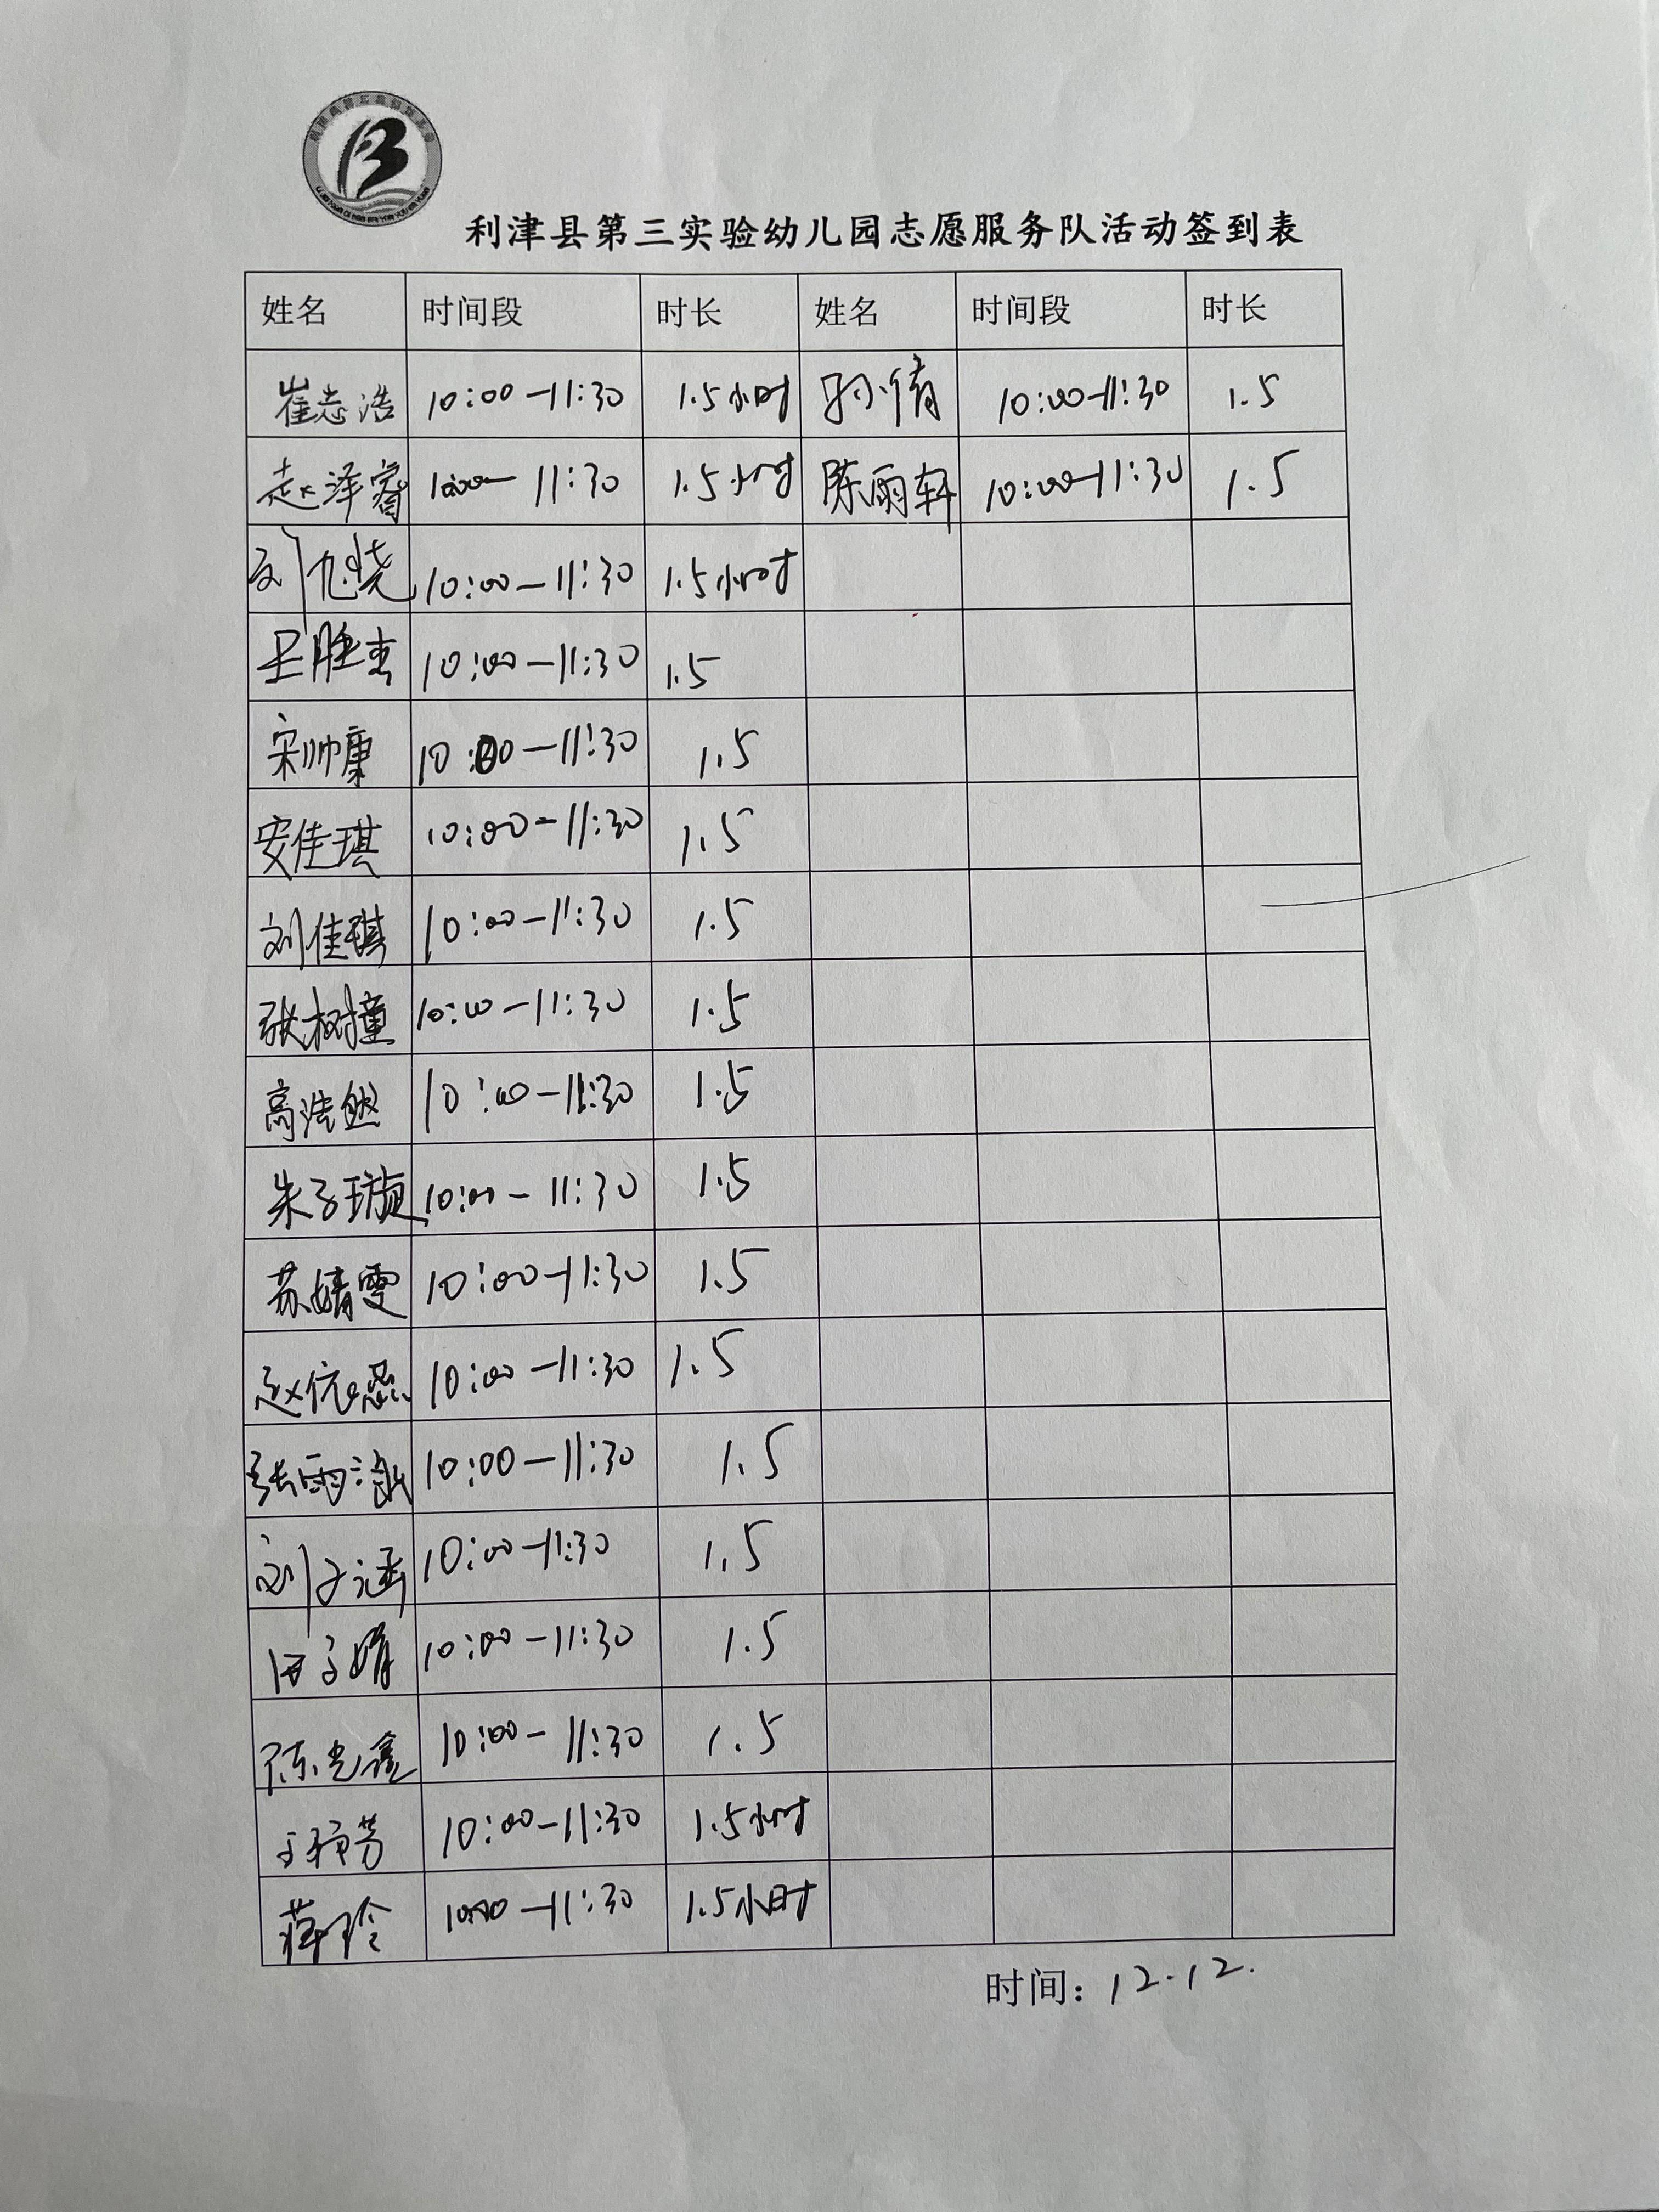 利津县第三实验幼儿园志愿服务队活动签到表
姓名 时间段 时长 姓名 时间段 时长
崔志浩 10:00-11:30 1.5小时 孙倩 10:00-11:30 1.5
赵泽睿 10:00-11:30 1.5小时 陈雨轩 10:00-11:30 1.5
刘 10:00-11:30 1.5小时
王胜杰 10:00-11:30 1.5
宋帅康 10:00-11:30 1.5
安佳琪 10:00-11:30 1.5
刘佳琪 10:00-11:30 1.5
张树撞 10:00-11:30 1.5
高浩然 10:00-11:30 1.5
朱子璇 10:00-11:30 1.5
苏婧雯 10:00-11:30 1.5
赵依 10:00-11:30 1.5
张雨 10:00-11:30 1.5
刘子涵 10:00-11:30 1.5
田子婧 10:00-11:30 1.5
陈光鑫 10:00-11:30 1.5
10:00-11:30 1.5小时
薛玲 10:00-11:30 1.5小时
时间：12.12.